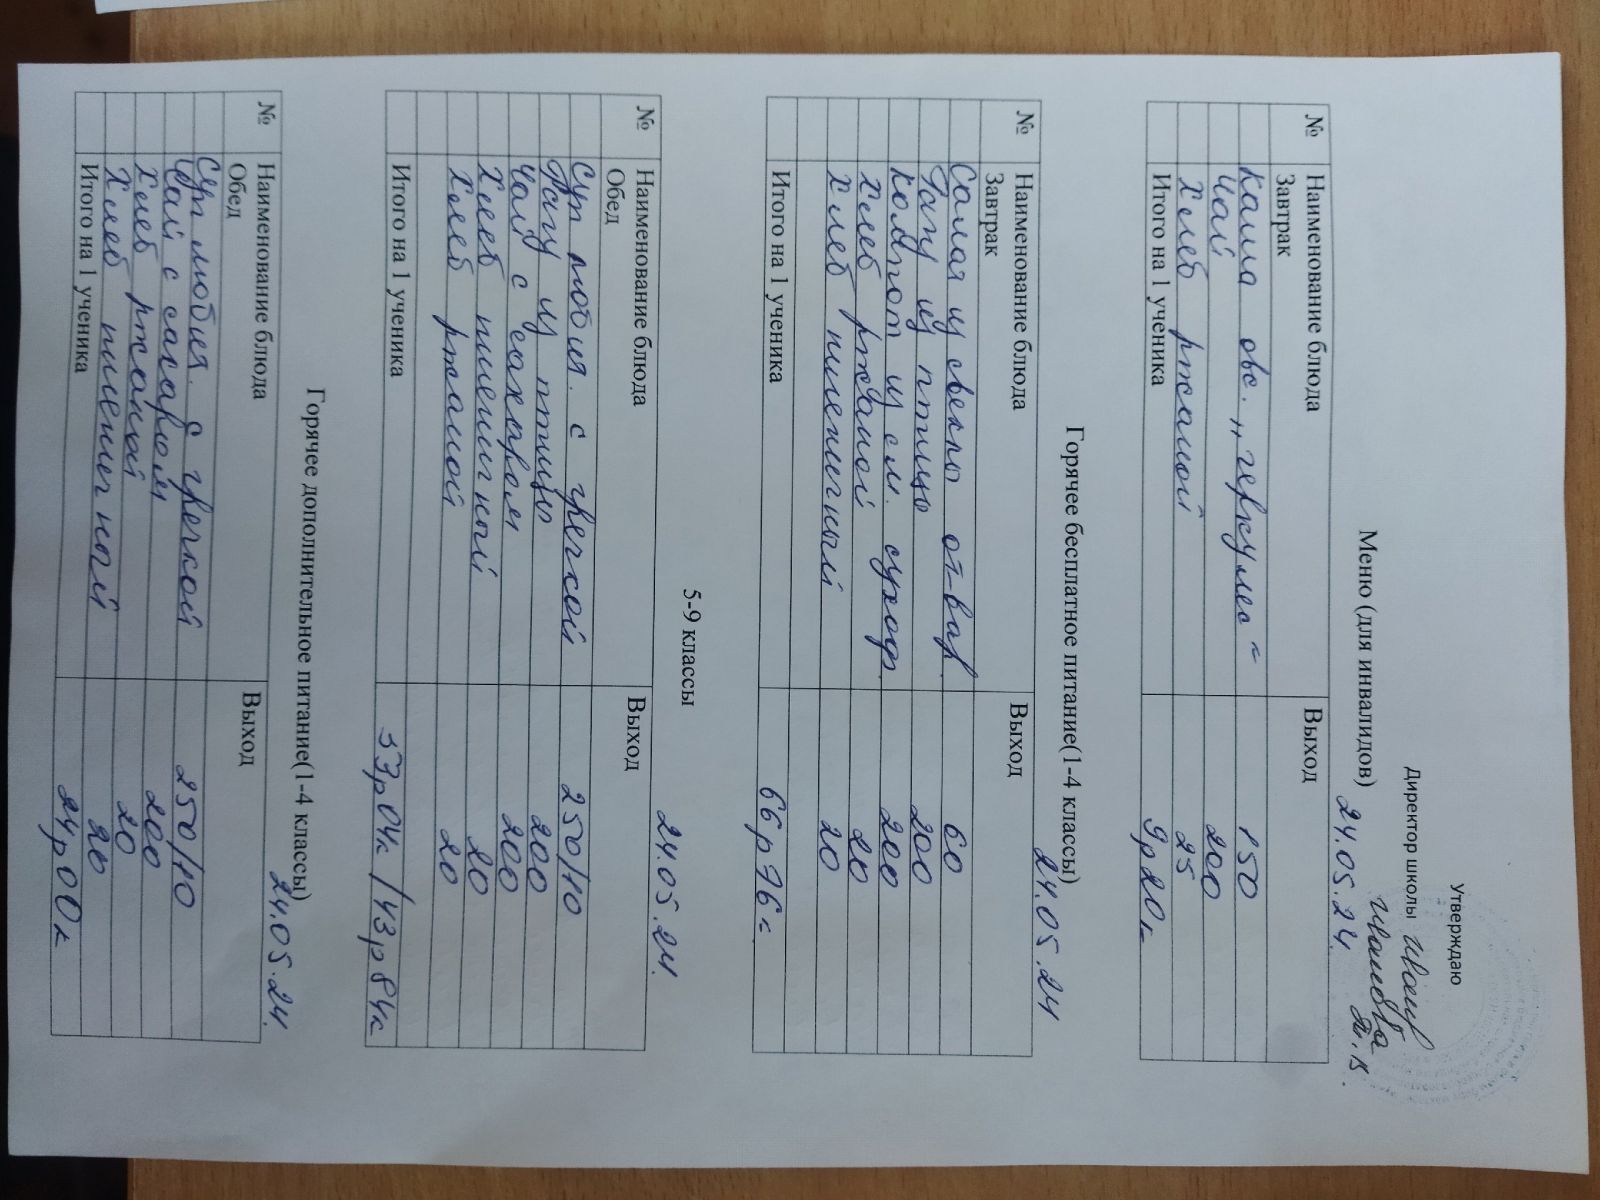 Утверждаю
Директор школы
Иванова Т. В.
Меню (для инвалидов) 24.05.24.
№ Наименование блюда Выход
Завтрак
Каша овс. „геркулес“ 150
Чай 200
Хлеб ржаной 25
Итого на 1 ученика 9р20к
Горячее бесплатное питание(1-4 классы)
24.05.24
№ Наименование блюда Выход
Завтрак
Салат из свеклы отвар. 60
Рагу из птицы 200
Компот из см. сухофр. 200
Хлеб ржаной 20
Хлеб пшеничный 20
Итого на 1 ученика 66р76к
5-9 классы 24.05.24.
№ Наименование блюда Выход
Обед
Суп любит. с гречкой 250/10
Рагу из птицы 200
Чай с сахаром 200
Хлеб пшеничный 20
Хлеб ржаной 20
Итого на 1 ученика 53р04к /43р84к
Горячее дополнительное питание(1-4 классы)
24.05.24.
№ Наименование блюда Выход
Обед
Суп любит. с гречкой 250/10
Чай с сахаром 200
Хлеб ржаной 20
Хлеб пшеничный 20
Итого на 1 ученика 24р00к